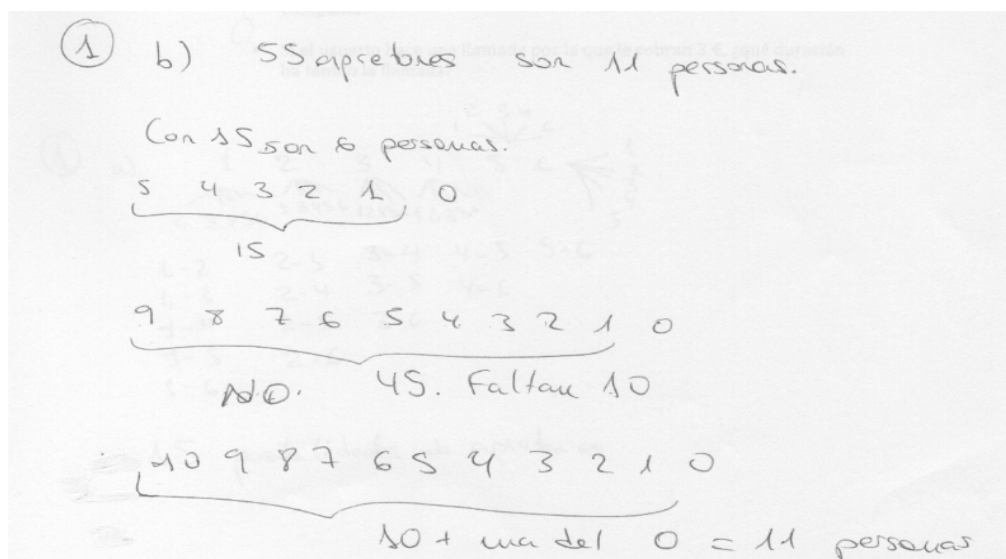 1 b) 55 apretones son 11 personas.
Con 15 son 6 personas.
5 4 3 2 1 0
15
9 8 7 6 5 4 3 2 1 0
NO. 45. Faltan 10
10 9 8 7 6 5 4 3 2 1 0
10 + una del 0 = 11 personas